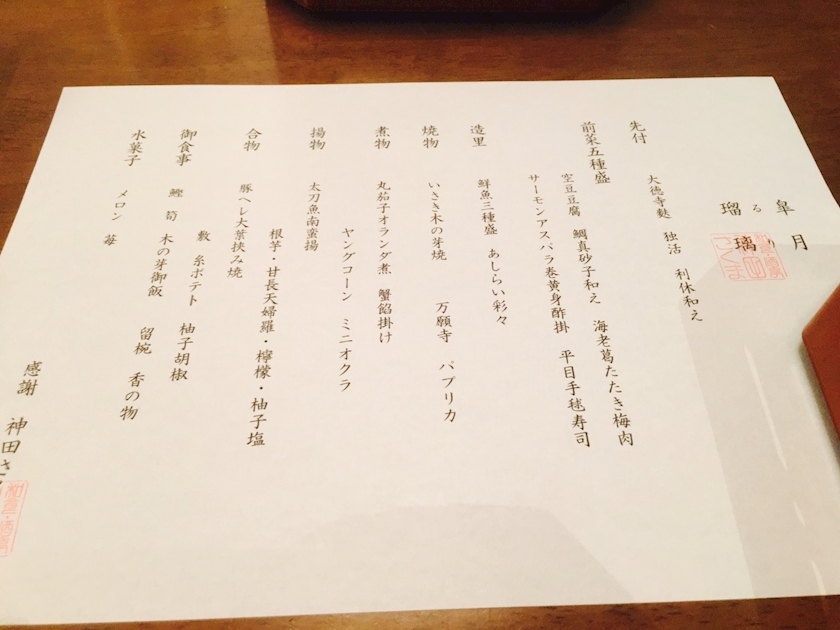 皐月
るり
瑠璃
先付
大徳寺麩 独活 利休和え
前菜五種盛
空豆豆腐 鯛真砂子和え 海老葛たたき梅肉
サーモンアスパラ巻黄身酢掛 平目手毬寿司
造里
鮮魚三種盛 あしらい彩々
焼物
いさき木の芽焼 万願寺 パプリカ
煮物
丸茄子オランダ煮 蟹餡掛け
ヤングコーン ミニオクラ
揚物
太刀魚南蛮揚
根芋・甘長天婦羅・檸檬・柚子塩
合物
豚ヘレ大葉挟み焼
敷 糸ポテト 柚子胡椒
御食事
鰹 筍 木の芽御飯 留椀 香の物
水菓子
メロン 苺
感謝 神田